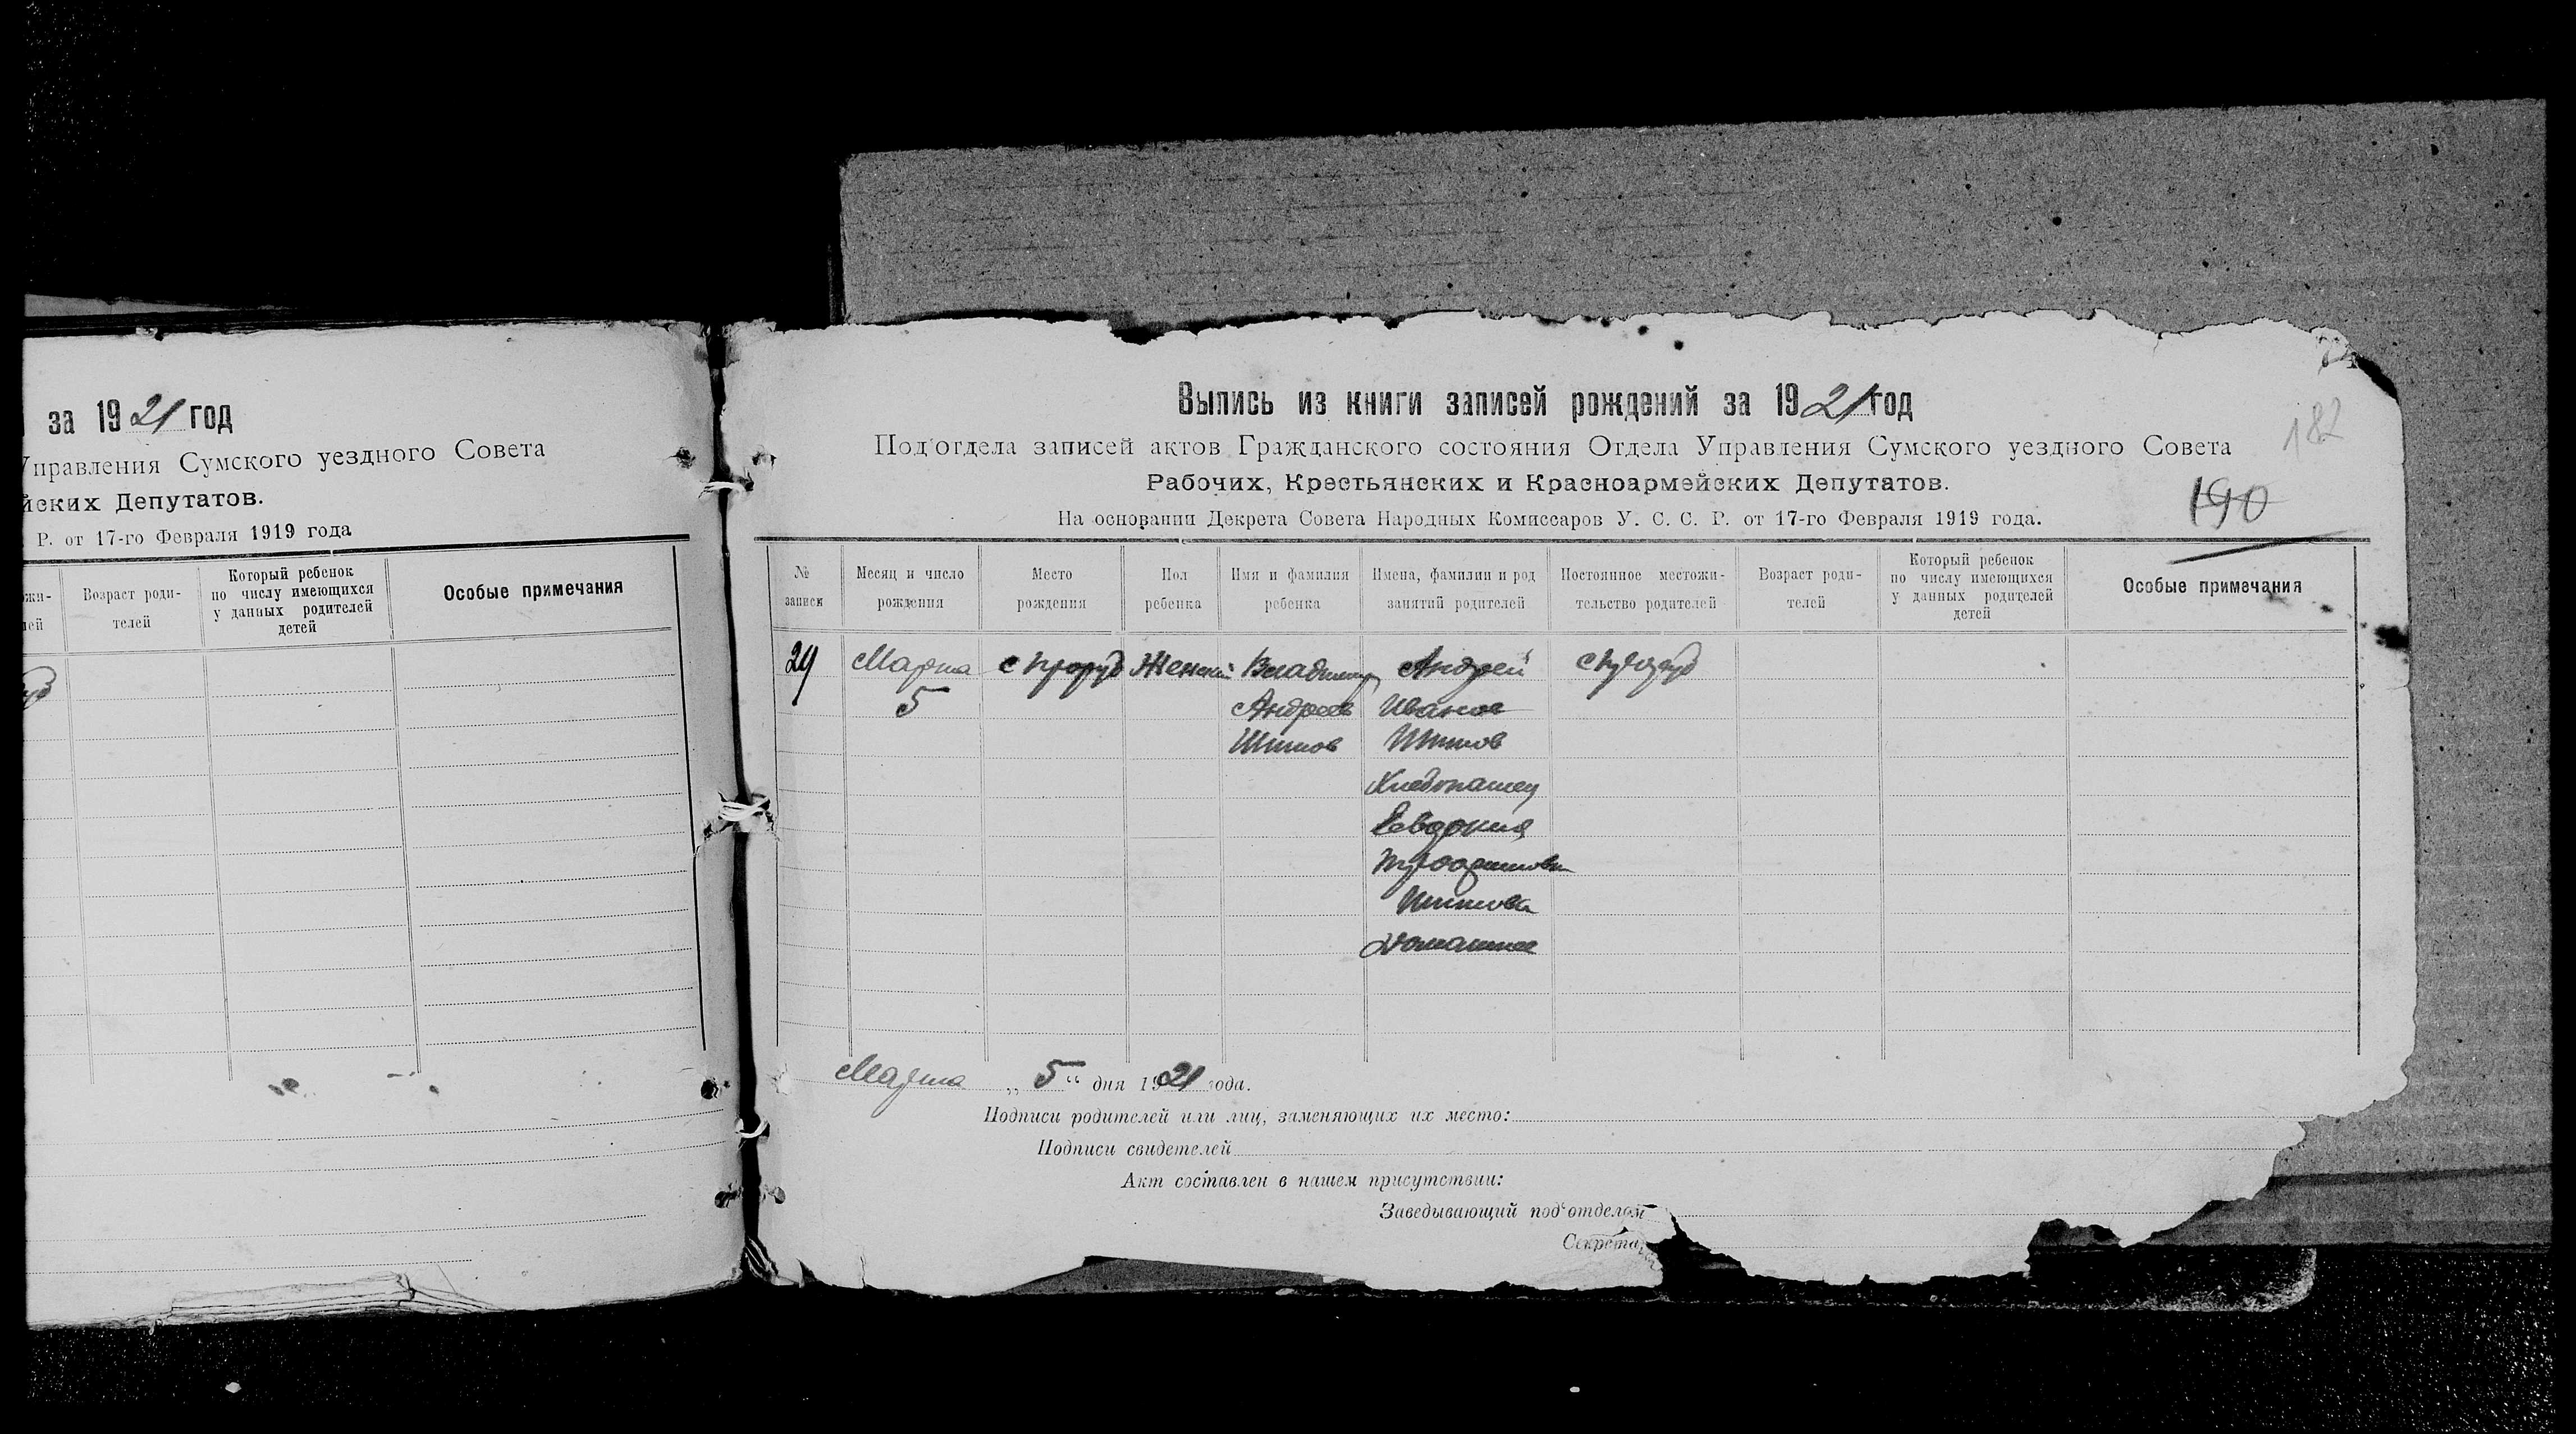 за 1921 год
Управления Сумского уездного Совета
йских Депутатов.
Р. от 17-го Февраля 1919 года
Возраст роди-
телей
Который ребенок
по числу имеющихся
у данных родителей
детей
Особые примечания
Выпись из книги записей рождений за 1921 год
182
Под'отдела записей актов Гражданского состояния Отдела Управления Сумского уездного Совета
Рабочих, Крестьянских и Красноармейских Депутатов.
190
На основании Декрета Совета Народных Комиссаров У. С. С. Р. от 17-го Февраля 1919 года.
№
записи
Месяц и число
рождения
Место
рождения
Пол
ребенка
Имя и фамилия
ребенка
Имена, фамилии и род
занятий родителей
Постоянное местожи-
тельство родителей
Возраст роди-
телей
Который ребенок
по числу имеющихся
у данных родителей
детей
Особые примечания
29
Марта
5
с Проруб
Женский
Владимир
Андреев
Шишов
Андрей
Иванов
Шишов
Хлебопашец
Евдокия
Шишова
Домашнее
с Проруб
Марта „5“ дня 1921 года.
Подписи родителей или лиц, заменяющих их место:
Подписи свидетелей
Акт составлен в нашем присутствии:
Заведывающий под'отделом
Секрета